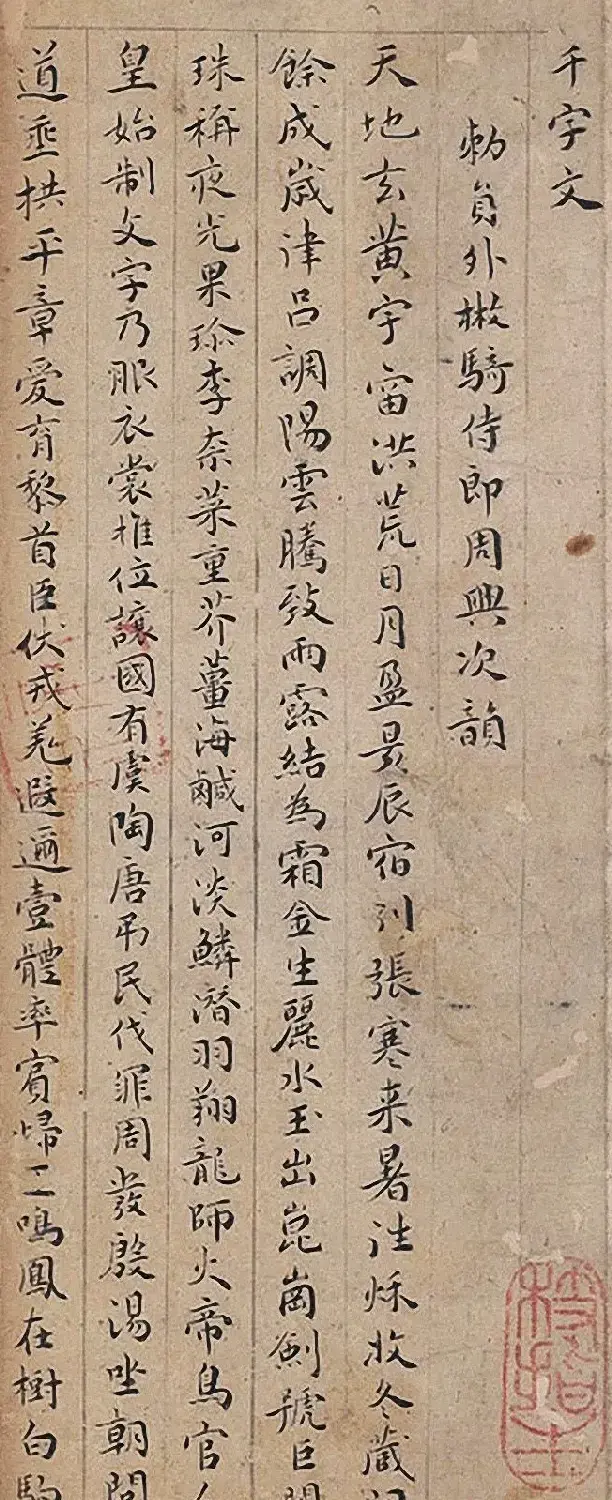 千字文
勑員外散騎侍郎周興次韻
天地玄黃宇宙洪荒日月盈昃辰宿列張寒来暑往秋收冬藏
餘成歲律呂調陽雲騰致雨露結為霜金生麗水玉出崑崗劍號巨
珠稱夜光果珎李柰菜重芥薑海鹹河淡鱗潛羽翔龍師火帝鳥官人
皇始制文字乃服衣裳推位讓國有虞陶唐弔民伐罪周發殷湯坐朝問
道垂拱平章愛育黎首臣伏戎羌遐邇壹體率賓歸王鳴鳳在樹白駒